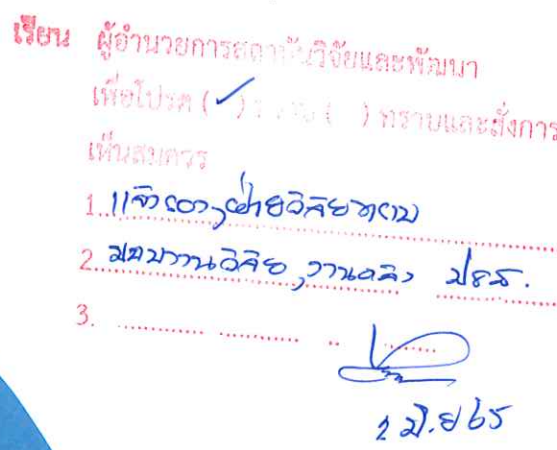 เรียน ผู้อำนวยการสถาบันวิจัยและพัฒนา
เพื่อโปรด (✓) ( ) ทราบและสั่งการ
เห็นสมควร
1. แจ้งรอง, ฝ่ายวิจัยทราบ
2. มอบงานวิจัย, งานคลัง ปยส.
3.
2 มิ.ย 65